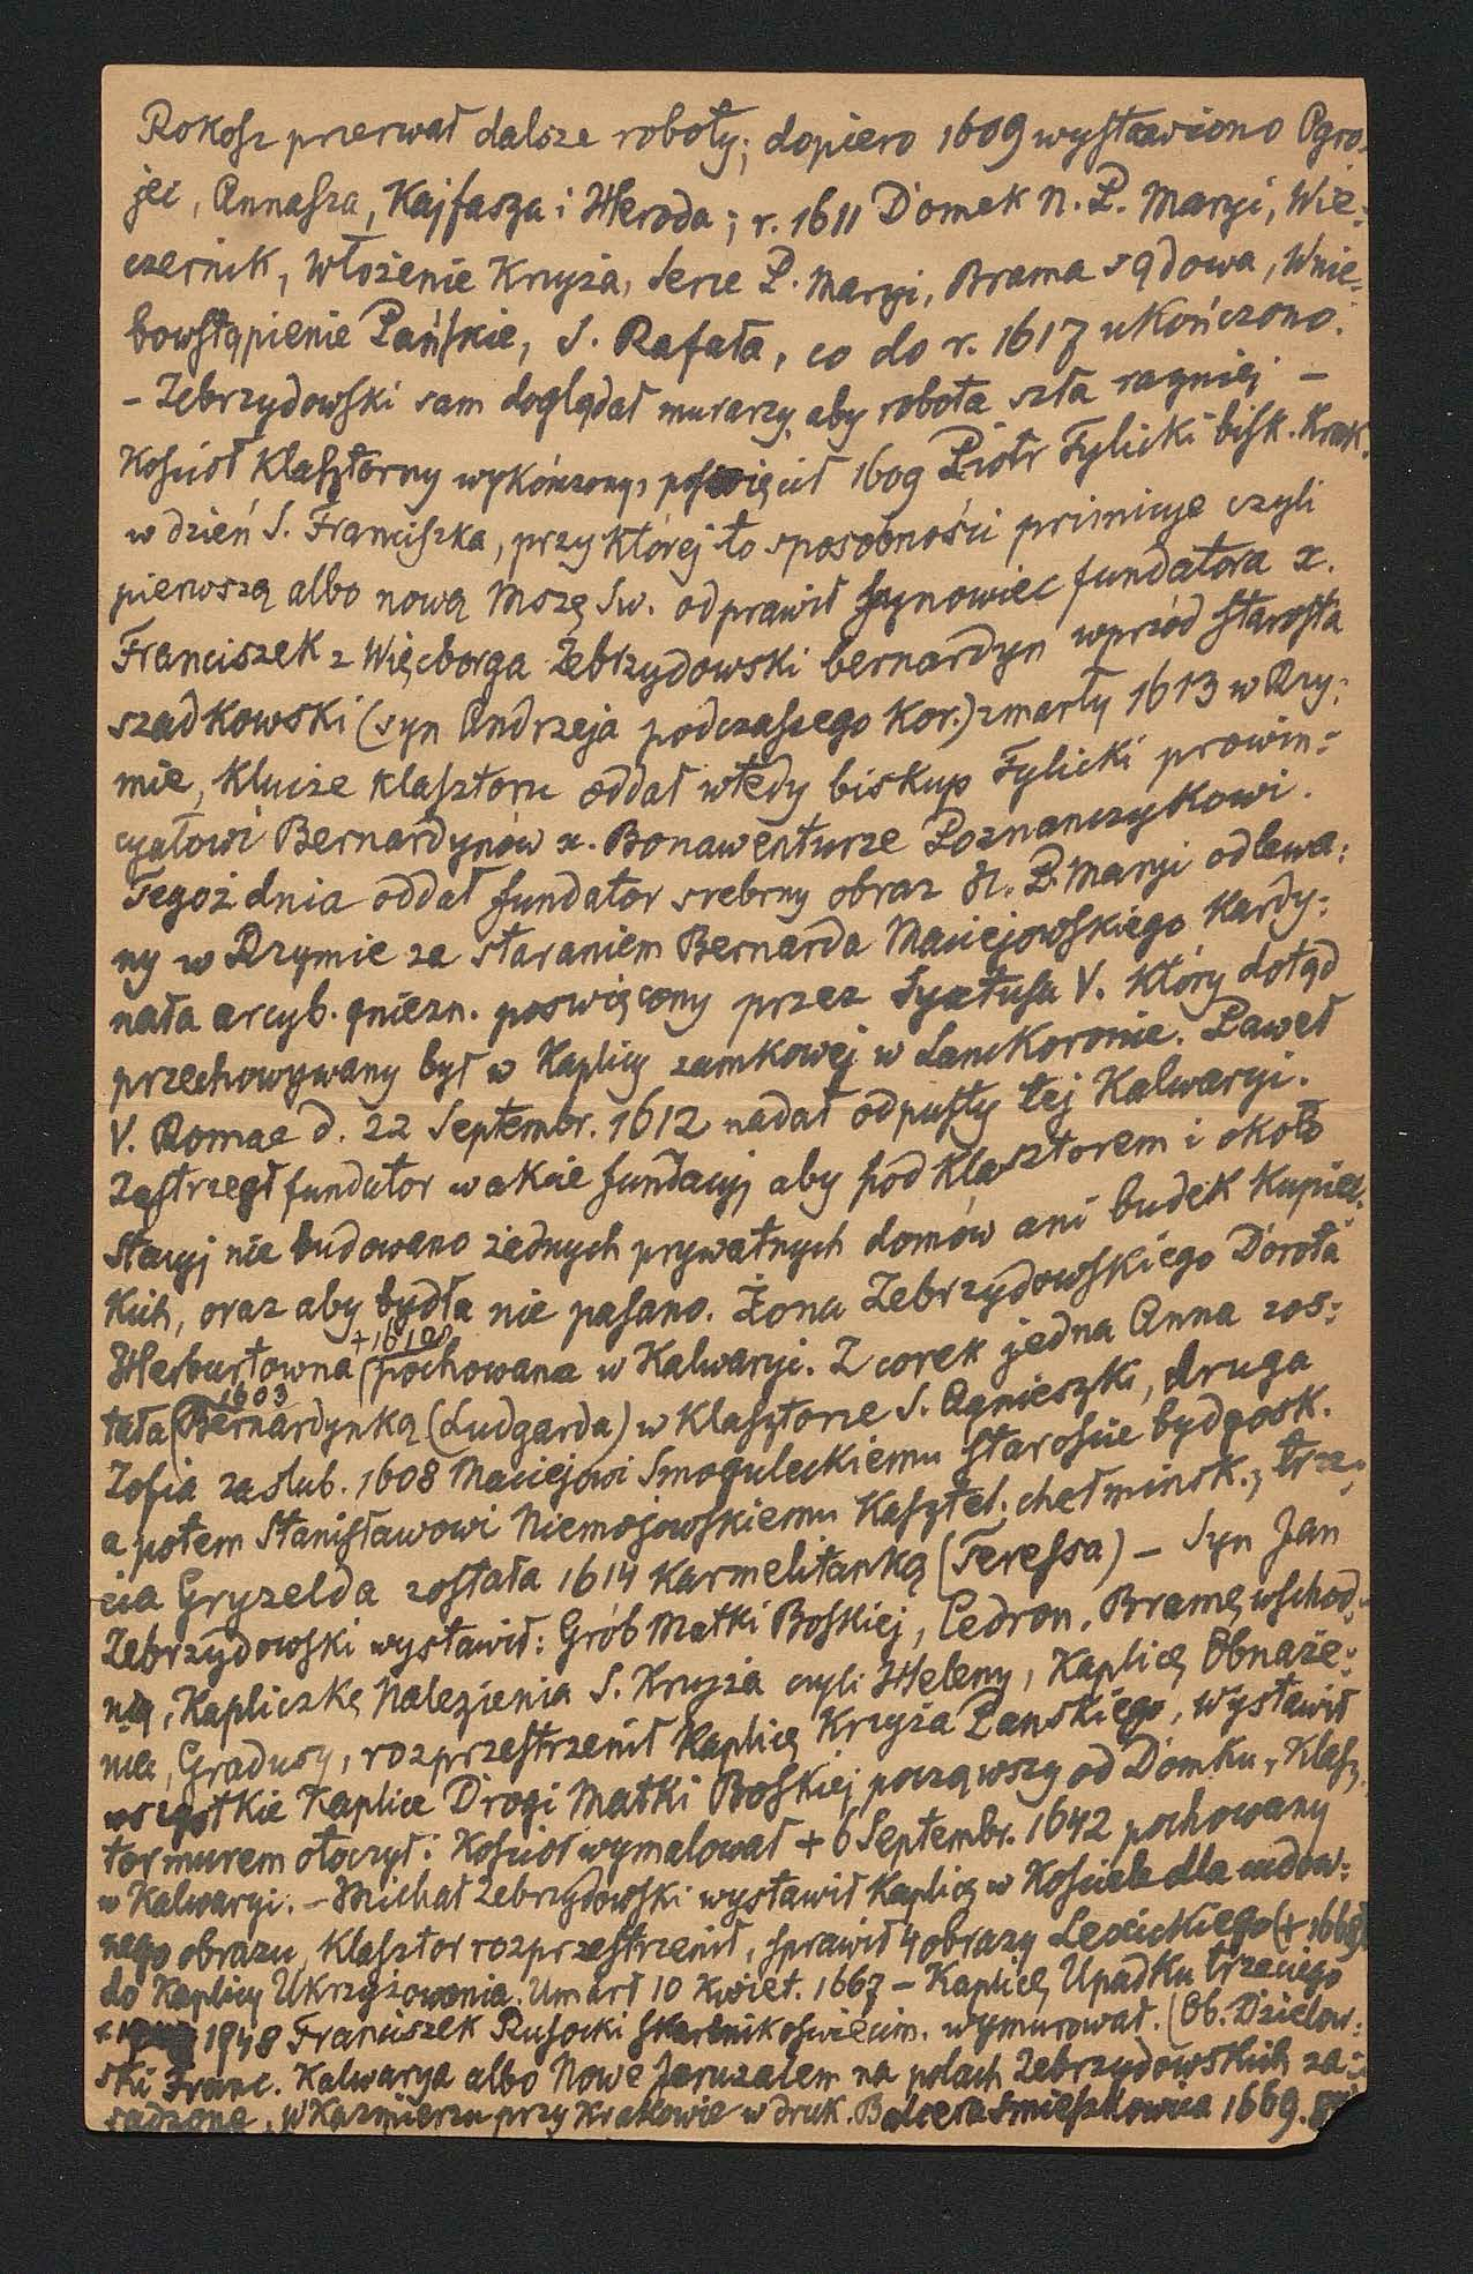 Rokosz przerwał dalsze roboty; dopiero 1609 wystawiono Ogro-
jec, Annasza, Kajfasza i Heroda; r. 1611 Domek N. P. Maryi, Wie:
czernik, Włożenie Krzyża, Serce P. Maryi, Brama sądowa, Wnie:
bowstąpienie Pańskie, S. Rafała, co do r. 1617 ukończono.
- Zebrzydowski sam doglądał murarzy, aby robota szła raźniej -
Kościoł klasztorny wykończony, poświęcił 1609 Piotr Tylicki bisk. Krak.
w dzień S. Franciszka, przy której to sposobności primicye czyli
pierwszą albo nową Mszę Sw. odprawił synowiec fundatora x.
Franciszek z Więcborga Zebrzydowski bernardyn wprzód starosta
szadkowski (syn Andrzeja podczaszego Kor.) zmarły 1613 w Rzy:
mie, Klucze klasztoru oddał wtedy biskup Tylicki prowin:
cyałowi Bernardynów x. Bonawenturze Poznanczykowi.
Tegoż dnia oddał fundator srebrny obraz N. P. Maryi odlewa:
ny w Rzymie za staraniem Bernarda Maciejowskiego Kardy:
nała arcyb. gniezn. poswięcony przez Syxtusa V. Który dotąd
przechowywany był w Kaplicy zamkowej w Lanckoronie. Paweł
V. Romae d. 22 Septembr. 1612 nadał odpusty tej Kalwaryi.
Zastrzegł fundator w akcie fundacyj aby pod klasztorem i około
Stacyj nie budowano żadnych prywatnych domów ani budek Kupiec.
Kich, oraz aby bydła nie pasano. Żona Zebrzydowskiego Dorota
Herburtowna pochowana w Kalwaryi. Z corek jedna Anna zos:
tała (1603 Bernardynką (Ludgarda) w klasztorze S. Agnieszki, druga
Zofia zaslub. 1608 Maciejowi Smoguleckiemu staroscie bydgosk.
a potem Stanisławowi Niemojowskiemu Kasztel. chełminsk., trze:
cia Gryzelda została 1614 Karmelitanką (Teressa) - Syn Jan
Zebrzydowski wystawił: Grób Matki Boskiej, Cedron, Bramę wschod:
nią, Kapliczkę Nalezienia S. Krzyża czyli Heleny, Kaplicę Obnaże:
nia, Gradusy, rozprzestrzenił Kaplicę Krzyża Panskiego, wystawił
wszystkie Kaplice Drogi Matki Boskiej począwszy od Domku, Klasz.
tor murem otoczył: Kościoł wymalował + 6 Septembr. 1642 pochowany
w Kalwaryi. - Michał Zebrzydowski wystawił Kaplicę w Kościele dla cudow:
nego obrazu, Klasztor rozprzestrzenił, sprawił 4 obrazy Lexickiego (+ 1668)
do Kaplicy Ukrzyżowania. Umarł 10 Kwiet. 1667 - Kaplicę Upadku trzeciego
1848 Franciszek Rusocki skarbnik oświecim. wymurował. (Ob. Dzielow:
ski Franc. Kalwarya albo Nowe Jeruzalem na polach Zebrzydowskich za:
sadzone, w Kazmierzu przy Krakowie w druk. Balcera Smieszkowica 1669.